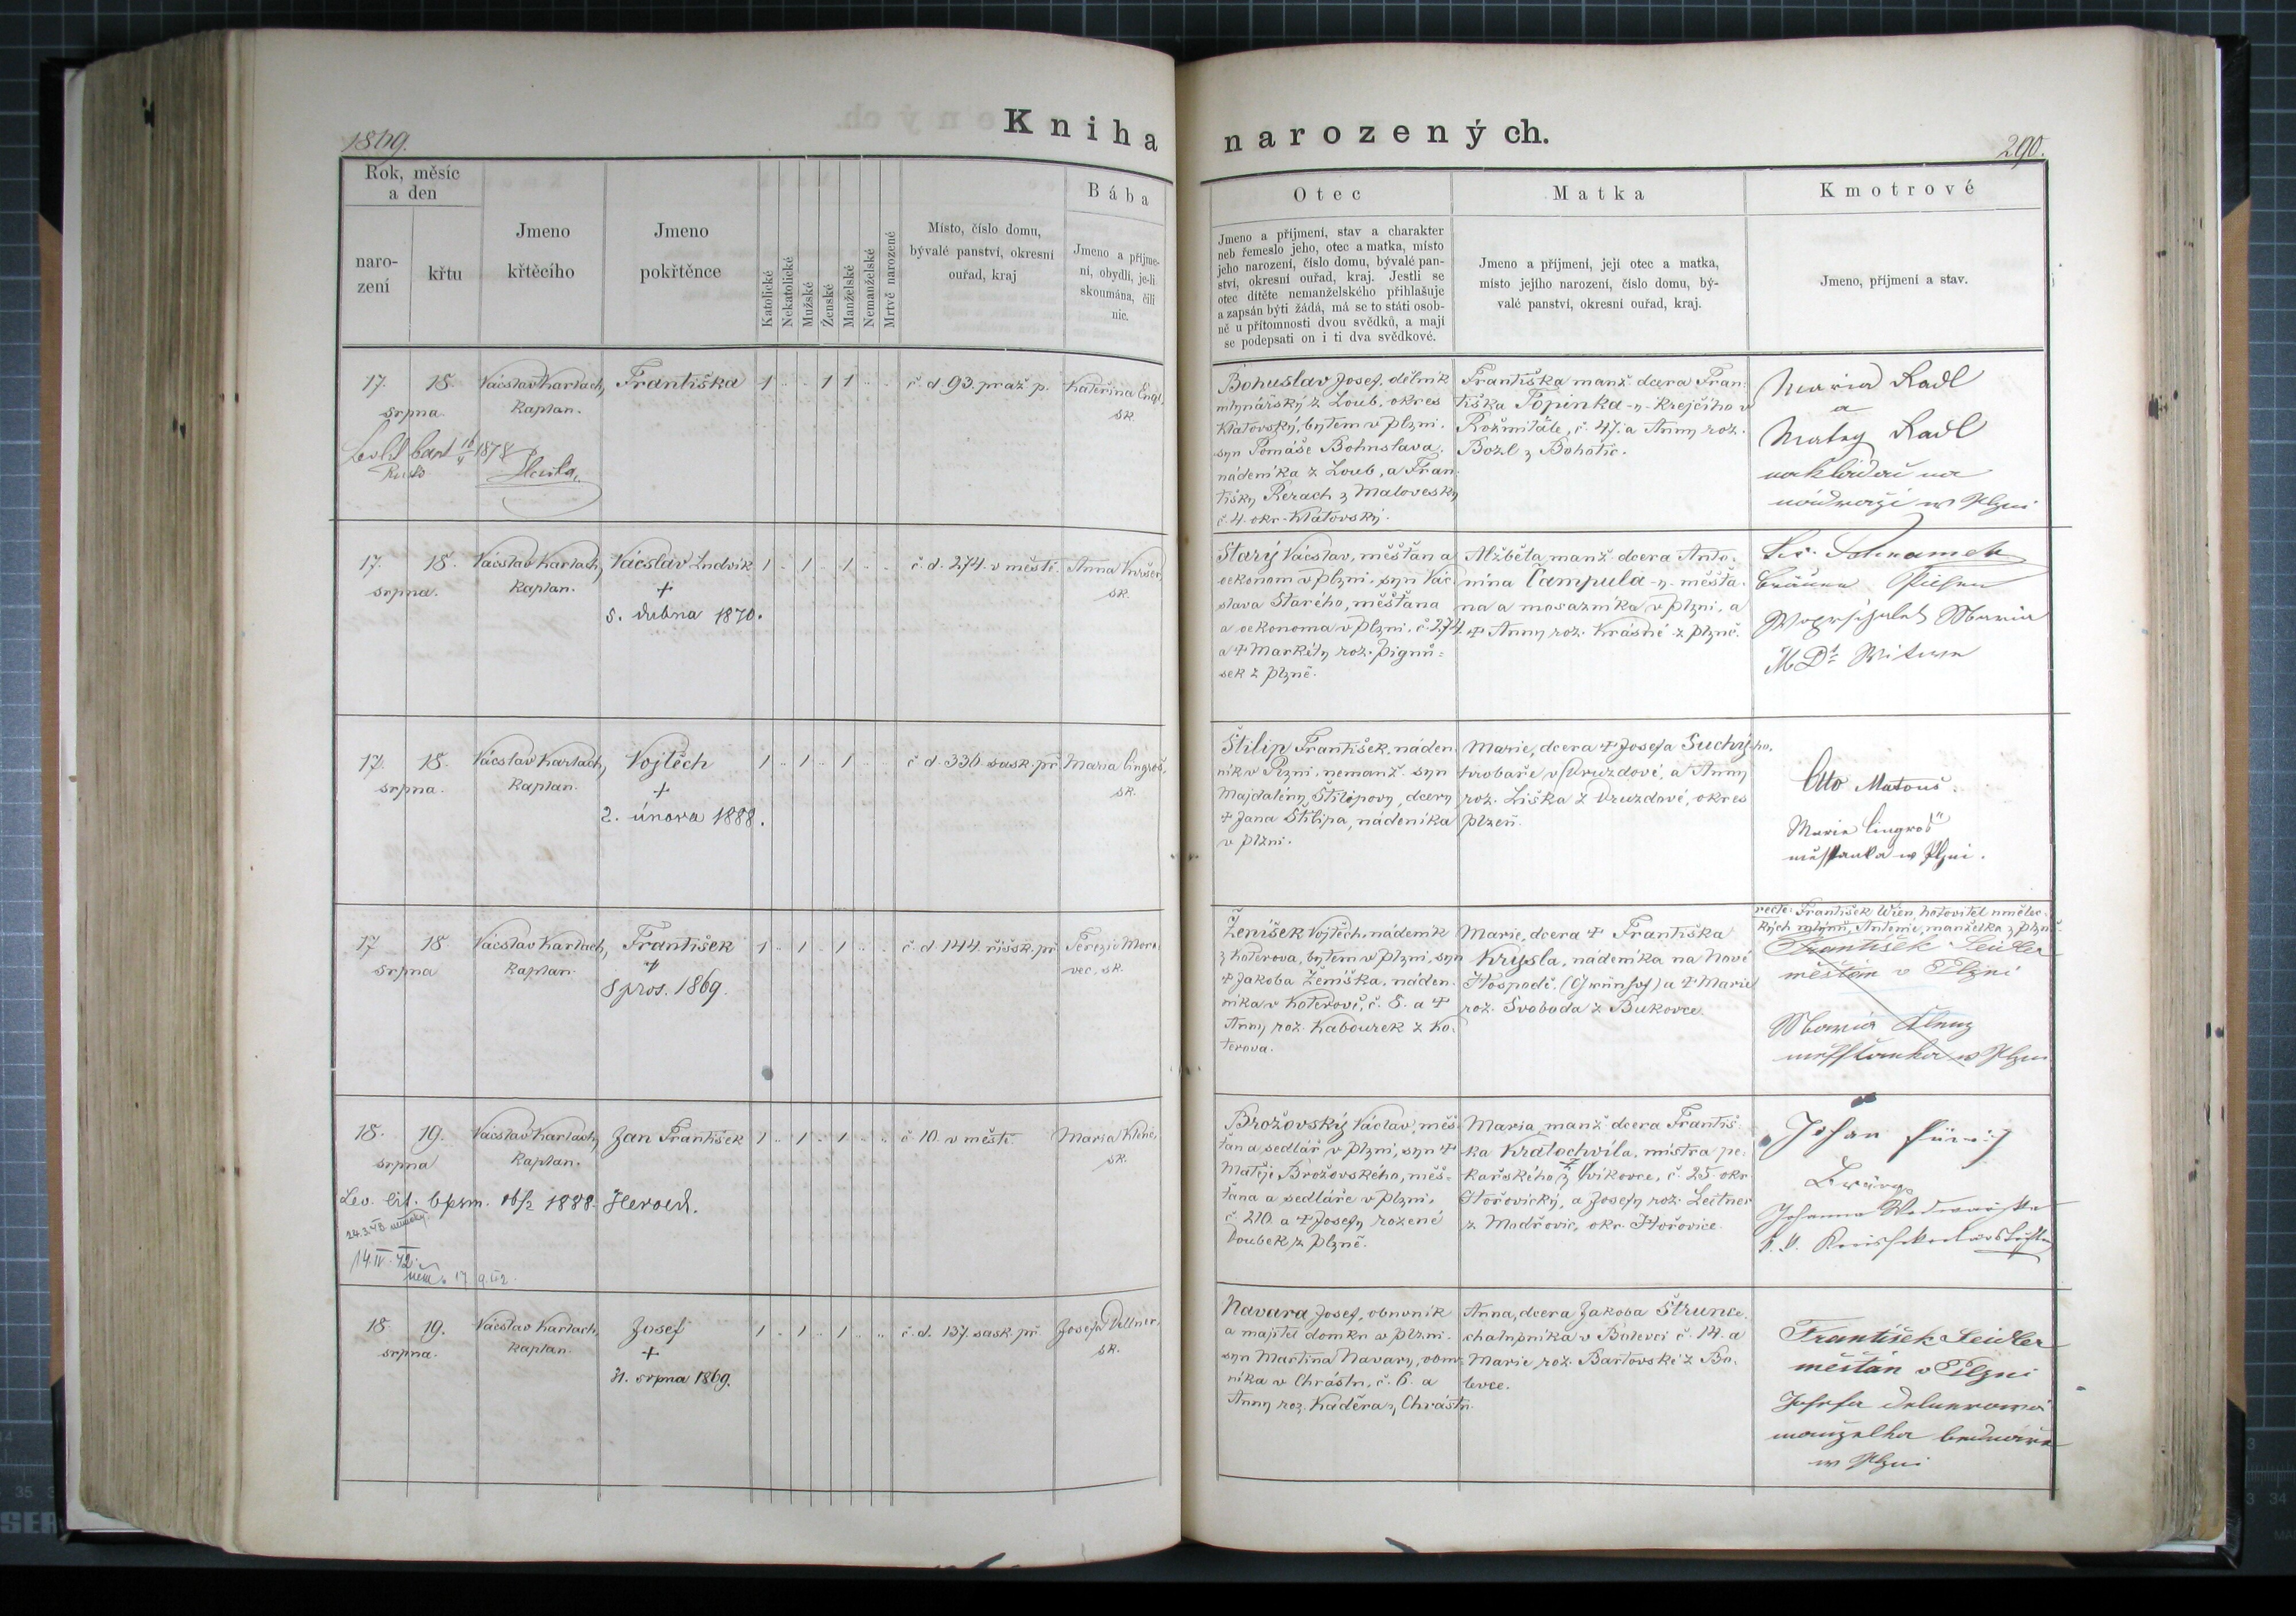 1869.
Kniha
narozených.
290.
Rok, měsíc
a den
naro-
zení
křtu
Jmeno
křtěcího
Jmeno
pokřtěnce
Katolické
Nekatolické
Mužské
Ženské
Manželské
Nemanželské
Mrtvě narozené
Místo, číslo domu,
bývalé panství, okresní
ouřad, kraj
Bába
Jmeno a příjme-
ní, obydlí, je-li
skoumána, čili
nic.
Otec
Jmeno a příjmení, stav a charakter
neb řemeslo jeho, otec a matka, místo
jeho narození, číslo domu, bývalé pan-
ství, okresní ouřad, kraj. Jestli se
otec dítěte nemanželského přihlašuje
a zapsán býti žádá, má se to státi osob-
ně u přítomnosti dvou svědků, a mají
se podepsati on i ti dva svědkové.
Matka
Jmeno a příjmení, její otec a matka,
místo jejího narození, číslo domu, bý-
valé panství, okresní ouřad, kraj.
Kmotrové
Jmeno, příjmení a stav.
17. 18. srpna
Vácslav Karlach,
Kaplan.
Františka
1 1 1
č. d. 93. praž. p.
Kateřina Engl,
sk.
1878
Bohuslav Josef, dělník
mlynářský z Loub, okres
Klatovský, bytem v Plzni.
syn Tomáše Bohuslava,
nádeníka z Loub, a Fran-
tišky Rerach z Malovesky
č. 4. okr. Klatovský.
Františka manž. dcera Fran-
tiška Topinka-y- Krejčího v
Rožmitále, č. 47. a Anny rož.
Božl z Bohotic.
Maria Radl
a
Matěj Radl
nakladač na
nádraží w Plzni
17. 18. srpna.
Vácslav Karlach,
Kaplan.
Vácslav Ludvik
+
5. dubna 1870.
1 1 1
č. d. 274. v městě.
Anna
sk.
Starý Vácslav, měšťan a
oekonom v Plzni. syn Vác-
slava Starého, měšťana
a oekonoma v Plzni. č 274.
a + Markéty rož.
sek z Plzně.
Alžběta manž. dcera Anto-
nína Čampula-y- měšťa-
na a mosazníka v Plzni, a
+ Anny rož. Krásné z Plzně.
Maria
17. 18. srpna.
Vácslav Karlach,
Kaplan.
Vojtěch
+
2. února 1888.
1 1 1
č d. 336. sask. př.
Maria Lingroš,
sk.
Štilip František, náden-
ník v Plzni, nemanž. syn
Majdalény Štilipovy, dcery
+ Jana Štilipa, nádeníka
v Plzni.
Marie, dcera + Josefa Suchýho,
hrobaře v Druzdové, a Anny
rož. Liška z Druzdové, okres
Plzeň.
Otto Matouš.
Marie Lingroš
měštanka w Plzni.
17 18 srpna
Vácslav Karlach,
Kaplan.
František
+
8 pros. 1869.
1 1 1
č. d. 144. říšsk. př.
Terezie Mora-
vec, sk.
Ženíšek Vojtěch, nádeník
z Koterova, bytem v Plzni, syn
+ Jakoba Ženíška, náden-
níka v Koterově, č. 8. a +
Anny rož. Kabourek z Ko-
terova.
Marie, dcera + Františka
Krysla, nádeníka na Nové
Hospodě. (Grünhof) a + Marie
rož. Svoboda z Bukovce.
recte: František Wien, hotovitel umělec-
kých mlýnů, Antonie, manželka z Plzně.
František Seidler
měštan v Plzni
Maria
měšťanka w Plzni
18. 19. srpna
Vácslav Karlach,
Kaplan.
Jan František
1 1 1
č 10. v městě.
Maria Klenč,
sk.
Lev. lit. bpsm. 16/2 1888. Herold.
14.IV.42.
Brožovský Václav, měš-
ťan a sedlář v Plzni, syn +
Matěje Brožovského, měš-
ťana a sedláře v Plzni,
č. 210. a + Josefy rozené
Doubek z Plzně.
Maria, manž. dcera Františ-
ka Kratochvíla, mistra pe-
kařského z Cvikovce, č. 25. okr.
Hořovický, a Josefy rož. Leitner
z Modřovic, okr. Hořovice.
Johan
Johanna
18. 19. srpna.
Vácslav Karlach,
Kaplan.
Josef
+
31. srpna 1869.
1 1 1
č. d. 137. sask. př.
Josefa Dellner,
sk.
Navara Josef, obuvník
a majitel domku v Plzni.
syn Martina Navary, obuv-
níka v Chrástu, č. 6. a
Anny roz. Kaděra z Chrástu.
Anna, dcera Jakoba Štrunce,
chalupníka v Bolevci č. 14. a
Marie rož. Bartovské z Bo-
levce.
František Seidler
měšťan v Plzni
Josefa Delnerowá
manželka bednáře
w Plzni